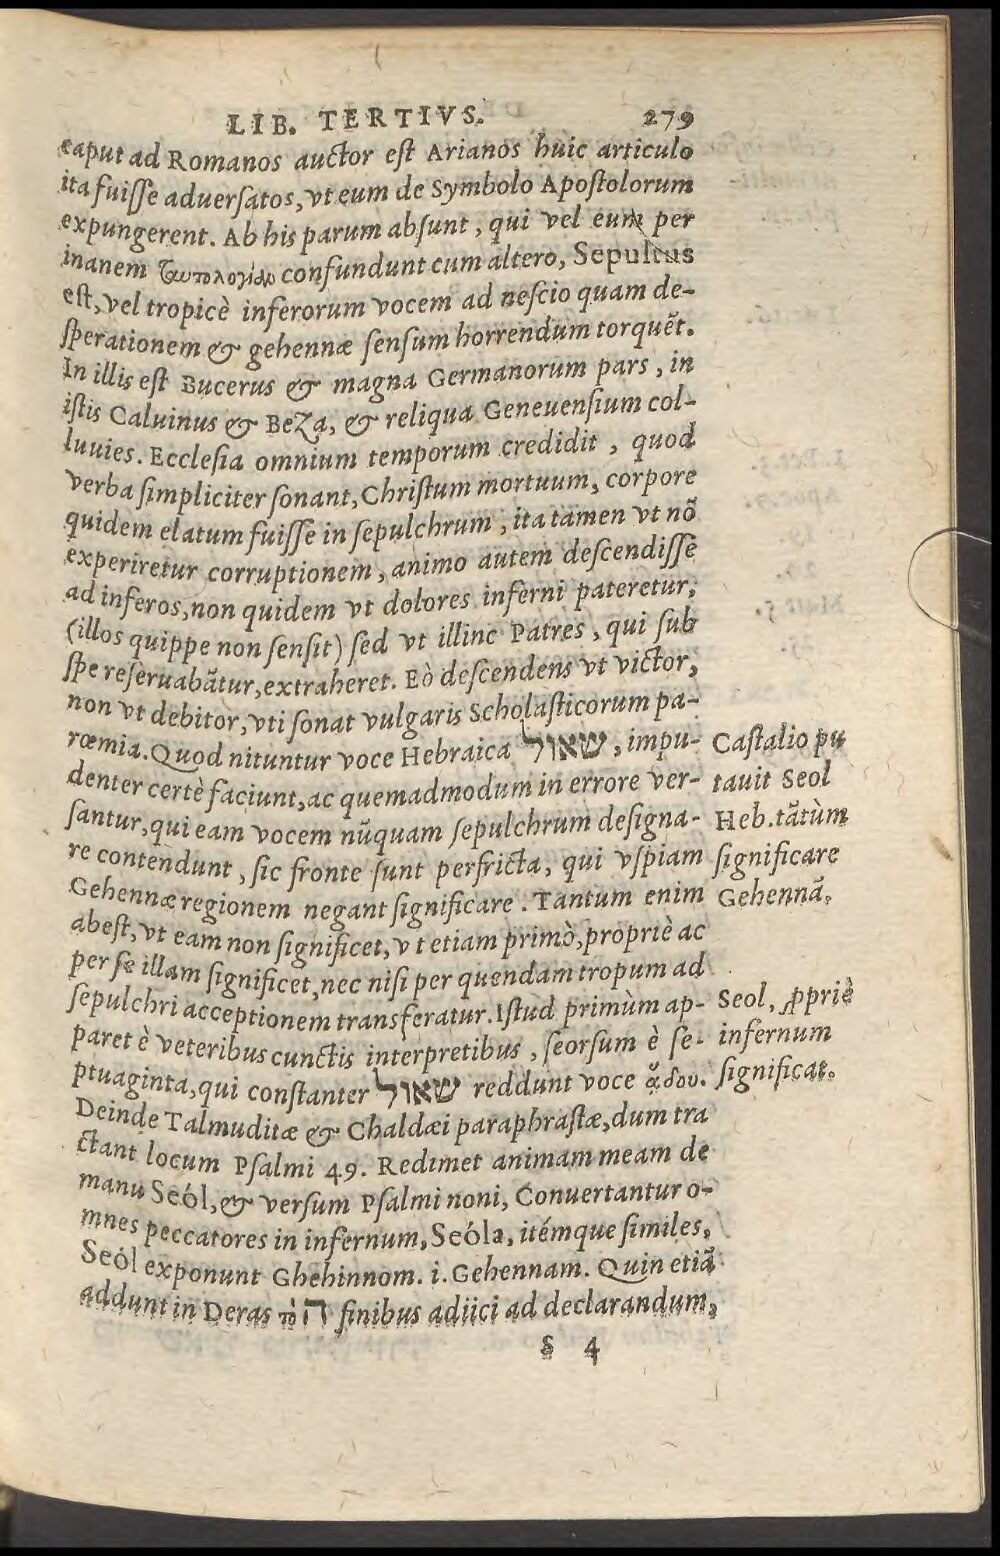 LIB. TERTIVS. 279
caput ad Romanos auctor est Arianos huic articulo
ita fuisse aduersatos, vt eum de Symbolo Apostolorum
expungerent. Ab his parum absunt, qui vel eum per
inanem ταυτολογίαν confundunt cum altero, Sepultus
est, vel tropicè inferorum vocem ad nescio quam de-
sperationem & gehennæ sensum horrendum torquēt.
In illis est Bucerus & magna Germanorum pars, in
istis Caluinus & Beza, & reliqua Geneuensium col-
luuies. Ecclesia omnium temporum credidit, quod
verba simpliciter sonant, Christum mortuum, corpore
quidem elatum fuisse in sepulchrum, ita tamen vt nō
experiretur corruptionem, animo autem descendisse
ad inferos, non quidem vt dolores inferni pateretur,
(illos quippe non sensit) sed vt illinc Patres, qui sub
spe reseruabātur, extraheret. Eò descendens vt victor,
non vt debitor, vti sonat vulgaris Scholasticorum pa-
rœmia. Quod nituntur voce Hebraica שאול, impu-
denter certè faciunt, ac quemadmodum in errore ver-
santur, qui eam vocem nūquam sepulchrum designa-
re contendunt, sic fronte sunt perfricta, qui vspiam
Gehennæ regionem negant significare. Tantum enim
abest, vt eam non significet, vt etiam primò, propriè ac
per se illam significet, nec nisi per quendam tropum ad
sepulchri acceptionem transferatur. Istud primùm ap-
paret è veteribus cunctis interpretibus, seorsum è se-
ptuaginta, qui constanter שאול reddunt voce ᾅδου.
Deinde Talmuditæ & Chaldæi paraphrastæ, dum tra
ctant locum Psalmi 49. Redimet animam meam de
manu Seól, & versum Psalmi noni, Conuertantur o-
mnes peccatores in infernum, Seóla, itémque similes,
Seól exponunt Ghehinnom. i. Gehennam. Quin etiā
addunt in Deras τὸ ה finibus adiici ad declarandum,
S 4
Castalio pu
tauit Seol
Heb. tātùm
significare
Gehennā.
Seol, ꝓpriè
infernum
significat.